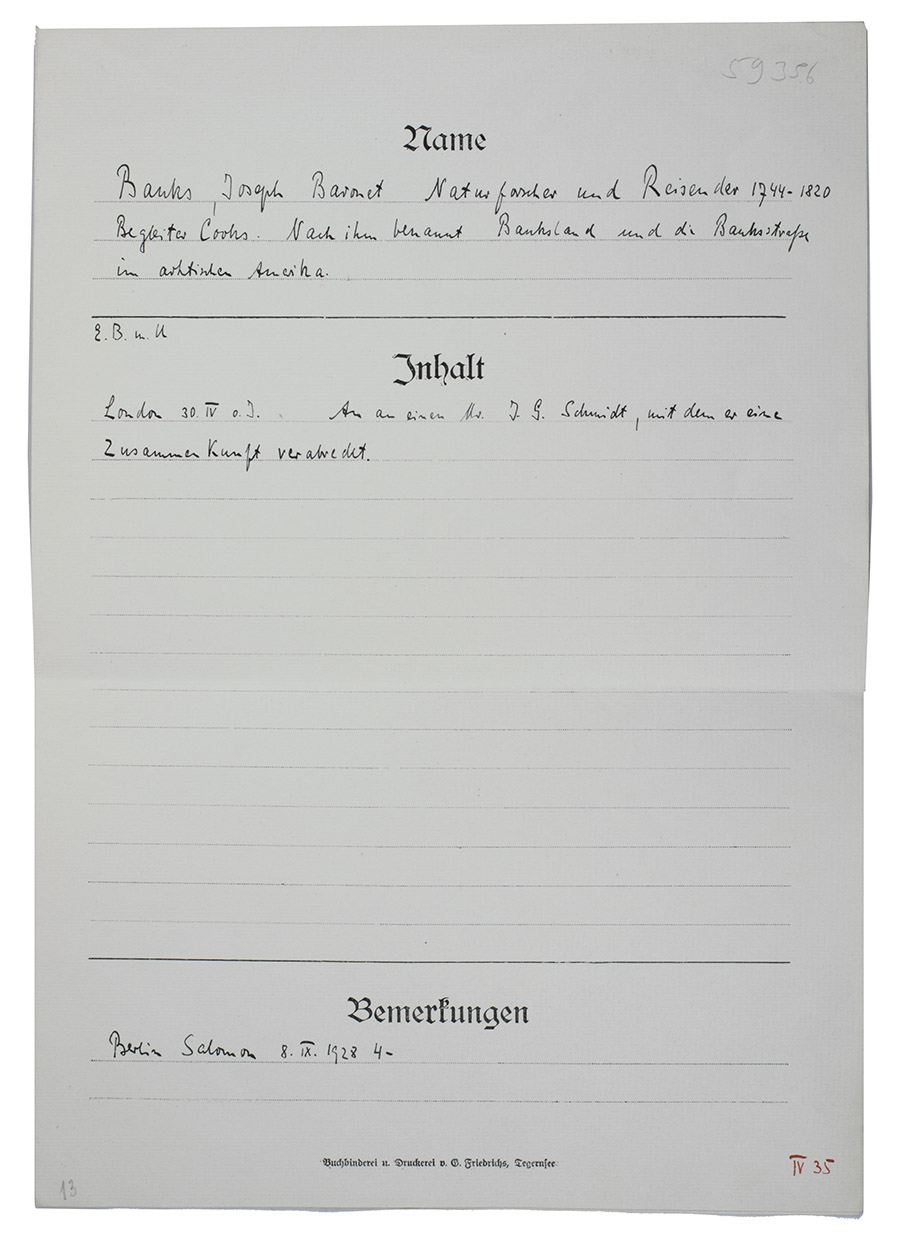 59356
Name
Banks, Joseph Baronet Naturforscher und Reisender 1744-1820
Begleiter Cooks. Nach ihm benannt Banksland und die Banksstraße
im arktischen Amerika.
E. B. m. U
Inhalt
London 30. IV o. J. An an einen Mr. J. G. Schmidt, mit dem er eine
Zusammenkunft verabredet.
Bemerkungen
Berlin Salomon 8. IX. 1928 4-
Buchbinderei u. Druckerei v. G. Friedrichs, Tegernsee
IV 35
13